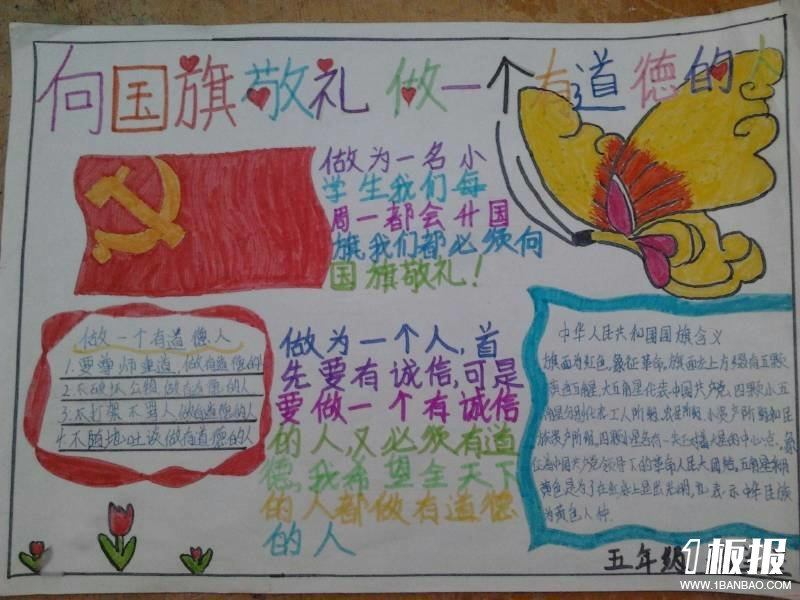 向国旗敬礼 做一个有道德的人
做为一名小
学生我们每
周一都会升国
旗,我们都必须向
国旗敬礼!
做一个有道德人
1.要尊师重道,做有道德的
2.不破坏公物做有道德的人
3.不打架不骂人做有道德的人
4.不随地吐谈做有道德的人
做为一个人,首
先要有诚信,可是
要做一个有诚信
的人,又必须有道
德,我希望全天下
的人都做有道德
的人
中华人民共和国国旗含义
旗面为红色,象征革命。旗面左上方缀有五颗
黄色五角星,大五角星代表中国共产党,四颗小五
角星分别代表工人阶级,农民阶级,小资产阶级和民
族资产阶级,四颗小星各有一尖正对着大星的中心点,象
征着中国共产党领导下的革命人民大团结。五角星采用
黄色是为了在红底上显出光明,也表示中华民族
为黄色人种
五年级
1板报
WWW.1BANBAO.COM